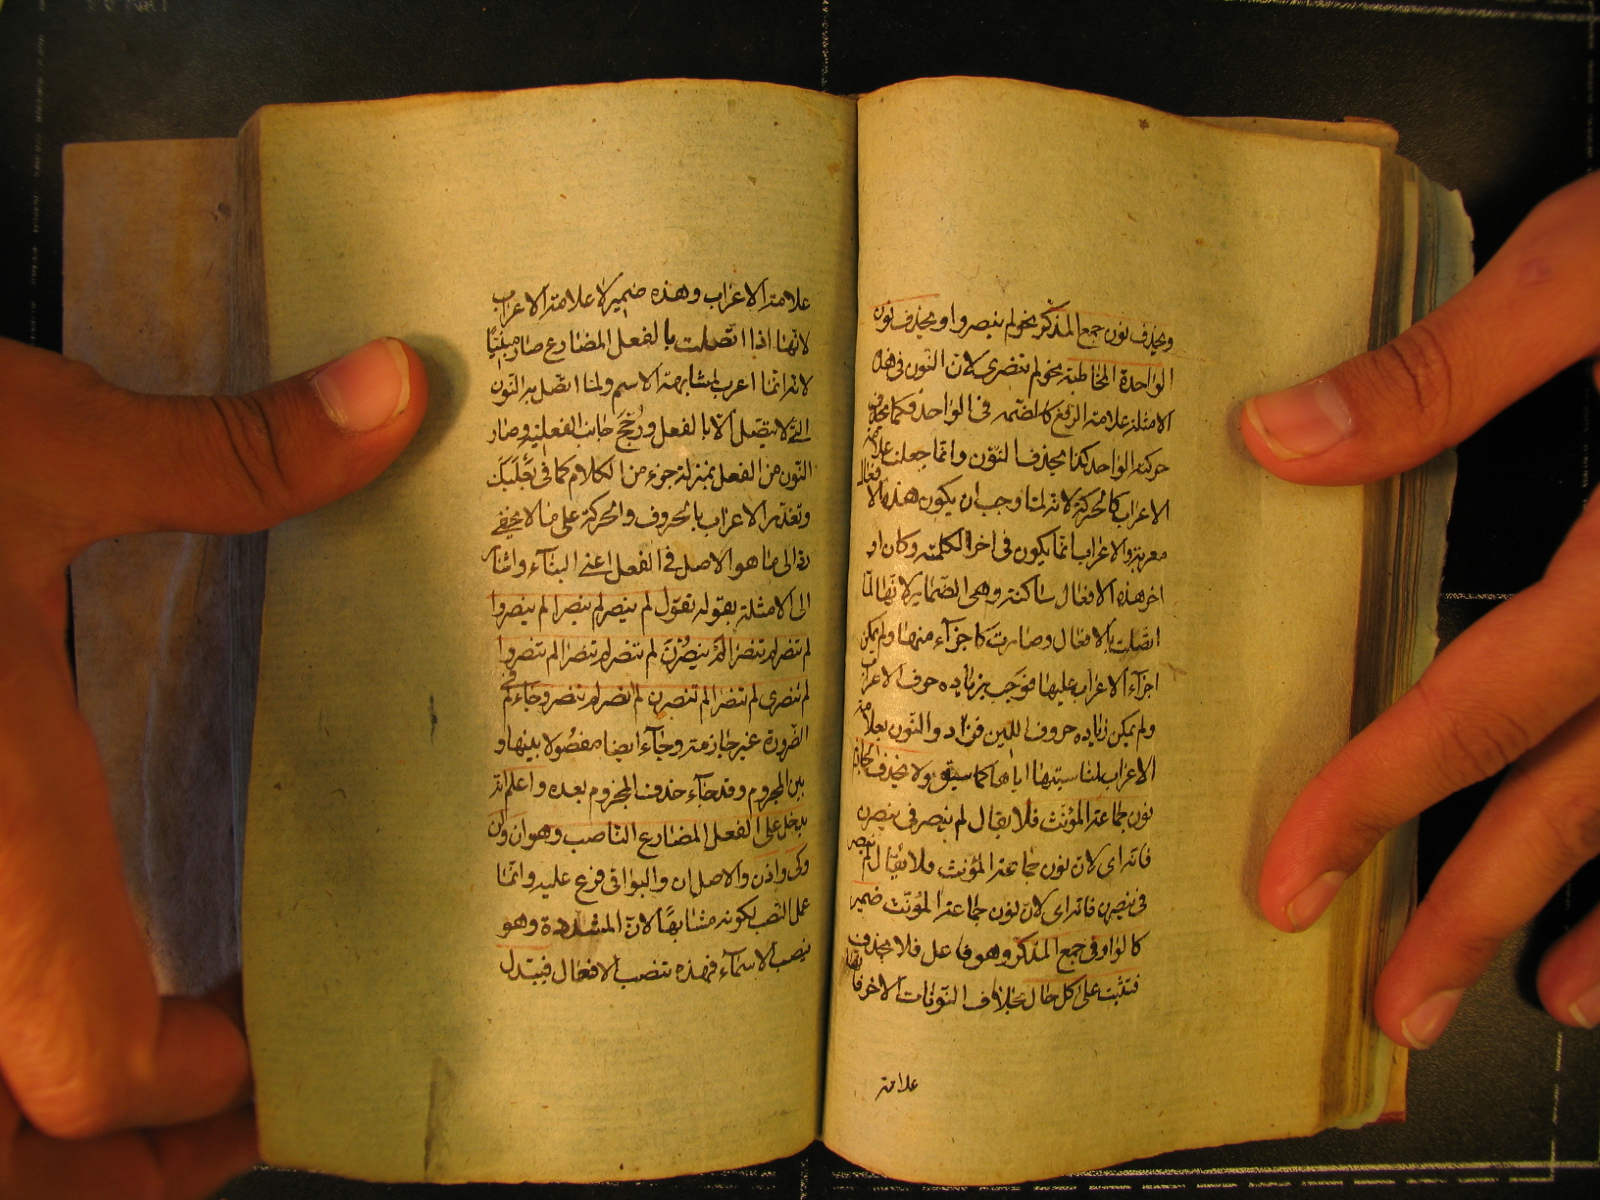 ويحذف نون جمع المذكر نحو لم ينصروا ويحذف نون
الواحدة المخاطبة نحو لم تنصرى لان النون فى هذه
الامثلة علامة الرفع كالضمة فى الواحد فكما يحذف
حركة الواحد كذا يحذف النون وانما جعلت علامة
الاعراب كالحركة لانه لما وجب ان يكون هذه الافعال
معربة والاعراب انما يكون فى اخر الكلمة وكان او
اخر هذه الافعال ساكنة وهى الضماير لانها لما
اتصلت بالافعال وصارت كاجزاء منها ولم يكن
اجراء الاعراب عليها فوجب بزياده حرف الاعراب
ولم يمكن زياده حروف اللين فزادوا النون بعلامة
الاعراب لمناسبتها اياها كما سبق ولا يحذف الجازم
نون جماعة المؤنث فلا يقال لم ينصر فى ينصرن
فانه اى لان نون جماعة المؤنث فلا يقال لم ينصر
فى ينصرن فانه اى لان نون جماعة المؤنث ضمير
كالواو فى جمع المذكر وهو فاعل فلا يحذف
فتثبت على كل حال بخلاف النونات الاخر فانها
علامة
علامة الاعراب وهذه ضمير لا علامة الاعراب
لانها اذا اتصلت بالفعل المضارع صار مبنيا
لانه انما اعرب لمشابهة الاسم ولما اتصل به النون
التى لا يتصل الا بالفعل ورجح جانب الفعلية وصار
النون من الفعل بمنزلة جزء من الكلام كما فى بعلبك
وتعذر الاعراب بالحروف والحركة على ما لا يخفى
رد الى ما هو الاصل فى الفعل اعنى البناء واشار
الى الامثلة بقوله تقول لم ينصر لم ينصرا لم ينصروا
لم تنصر لم تنصرا لم ينصرن لم تنصر لم تنصرا لم تنصروا
لم تنصرى لم تنصرا لم تنصرن لم انصر لم ننصر وجاء لم فى
الضرورة غير جازمة وجاء ايضا مفصولا بينها و
بين المجزوم وقد جاء حذف المجزوم بعده واعلم انه
يدخل على الفعل المضارع الناصب وهو ان ولن
وكى واذن والاصل ان والبواقى فرع عليه وانما
عمل النصب لكونه مشابها لان المشددة وهو
ينصب الاسماء فهذه تنصب الافعال فيبدل